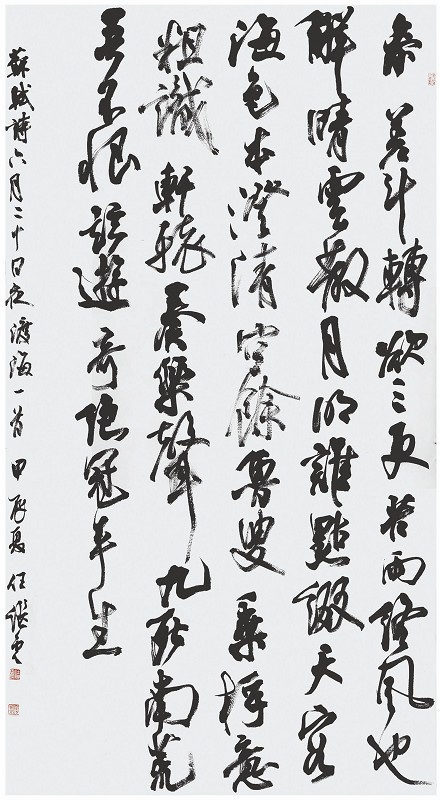 參差斗轉欲三更苦雨終風也
解晴雲散月明誰點綴天容
海色本澄清空餘魯叟乘桴意
粗識軒轅奏樂聲九死南荒
吾不恨茲遊奇絕冠平生
蘇軾詩六月二十日夜渡海一首 甲辰夏 任